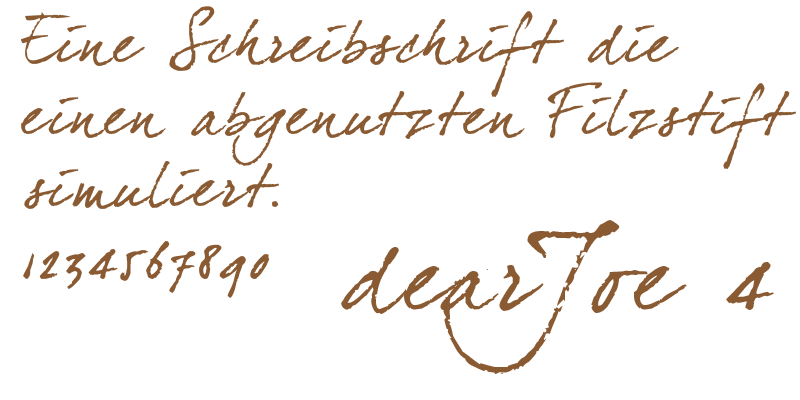 Eine Schreibschrift die
einen abgenutzten Filzstift
simuliert.
1234567890
dearJoe 4